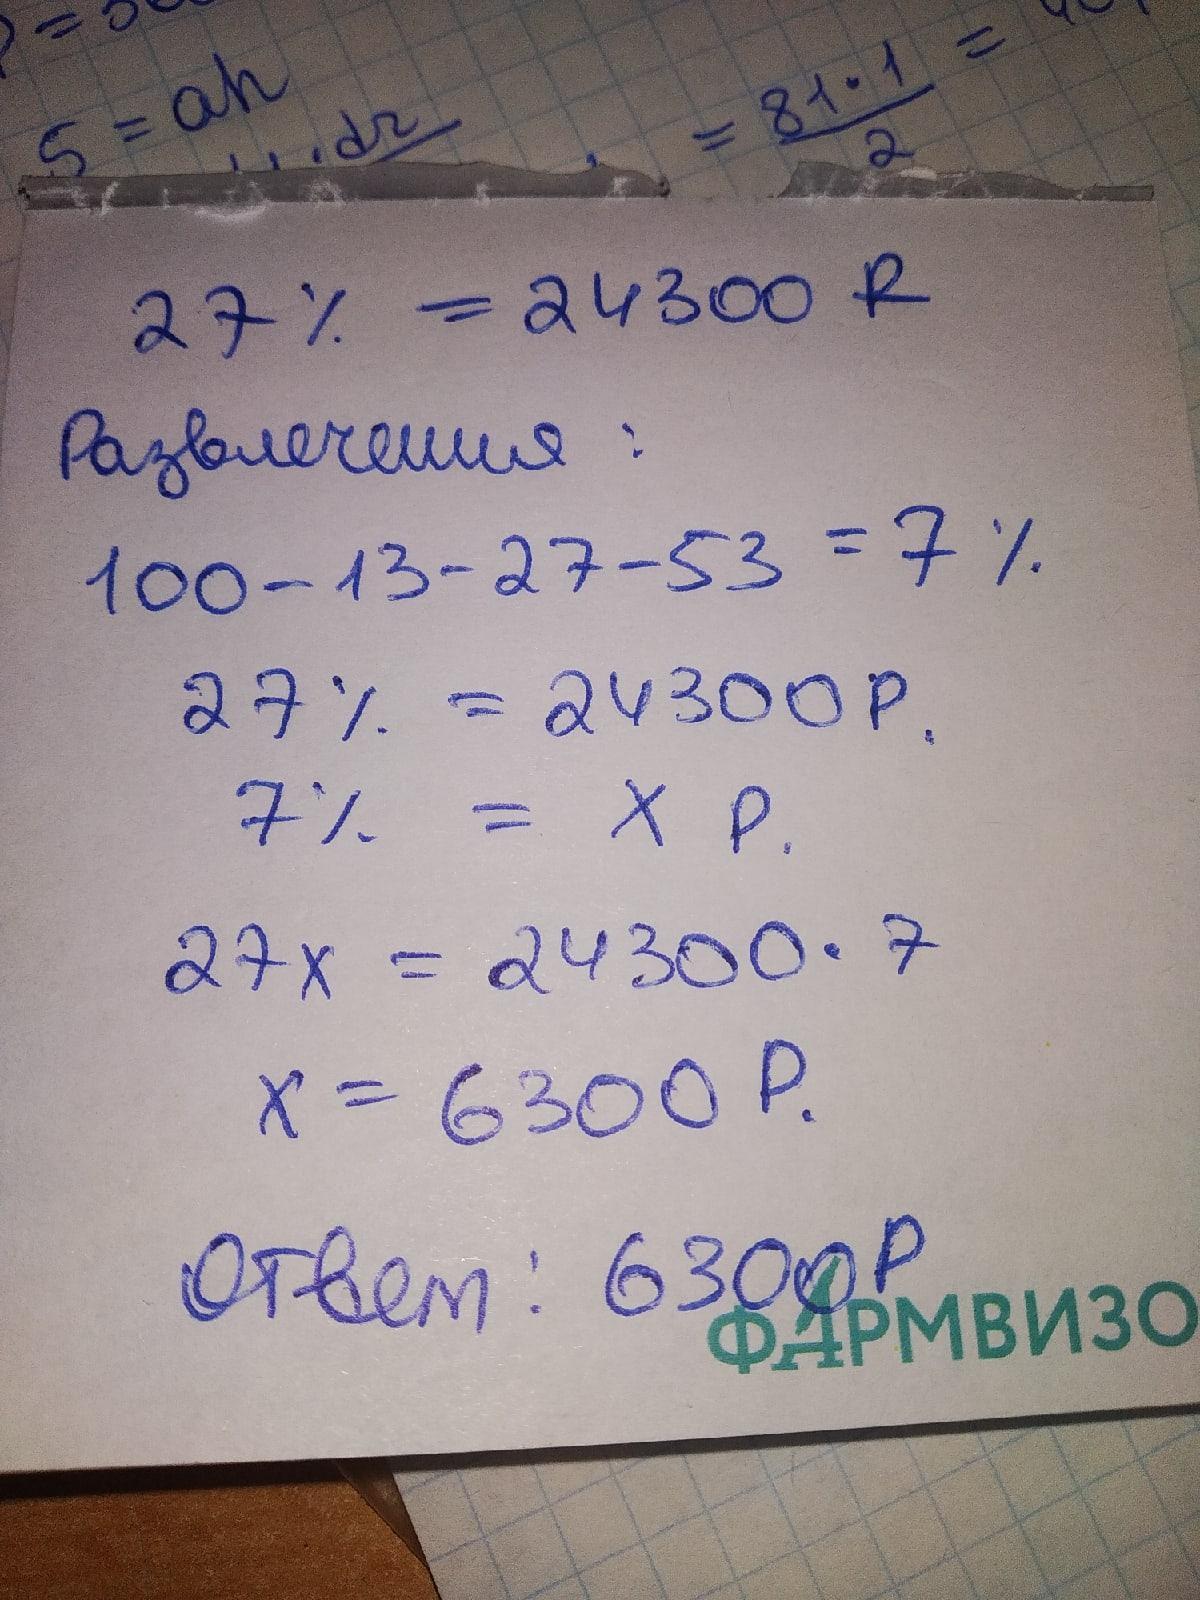 S = ah
= 81·1 =
2
27% = 24300 R
Развлечения:
100-13-27-53 = 7%
27% = 24300 Р.
7% = x Р.
27x = 24300·7
x = 6300 Р.
Ответ: 6300 Р
ФАРМВИЗО